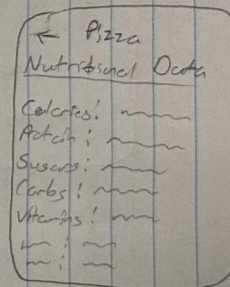 ← Pizza
Nutritional Data
Calories:
Sugars:
Carbs:
Vitamins: